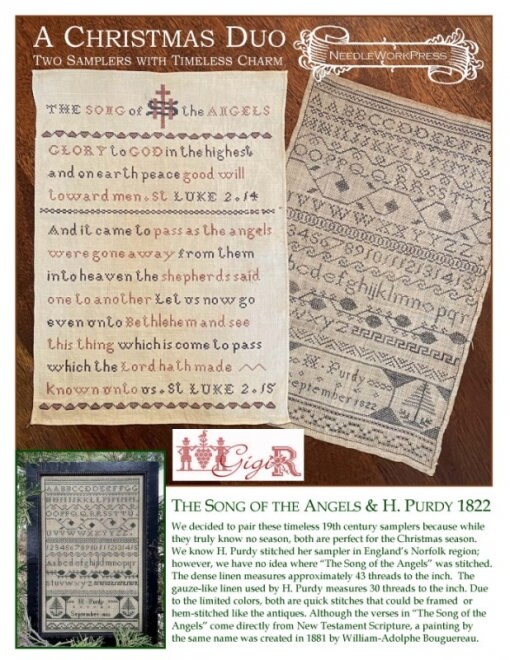 A CHRISTMAS DUO
TWO SAMPLERS WITH TIMELESS CHARM
NEEDLEWORKPRESS
THE SONG of the ANGELS
GLORY to GOD in the highest
and on earth peace good will
toward men. St LUKE 2.14
And it came to pass as the angels
were gone away from them
into heaven the shepherds said
one to another Let us now go
even unto Bethlehem and see
this thing which is come to pass
which the Lord hath made
known unto us. St LUKE 2.15
H. Purdy
September 1822
GigiR
THE SONG OF THE ANGELS & H. PURDY 1822
We decided to pair these timeless 19th century samplers because while
they truly know no season, both are perfect for the Christmas season.
We know H. Purdy stitched her sampler in England's Norfolk region;
however, we have no idea where "The Song of the Angels" was stitched.
The dense linen measures approximately 43 threads to the inch. The
gauze-like linen used by H. Purdy measures 30 threads to the inch. Due
to the limited colors, both are quick stitches that could be framed or
hem-stitched like the antiques. Although the verses in "The Song of the
Angels" come directly from New Testament Scripture, a painting by
the same name was created in 1881 by William-Adolphe Bouguereau.